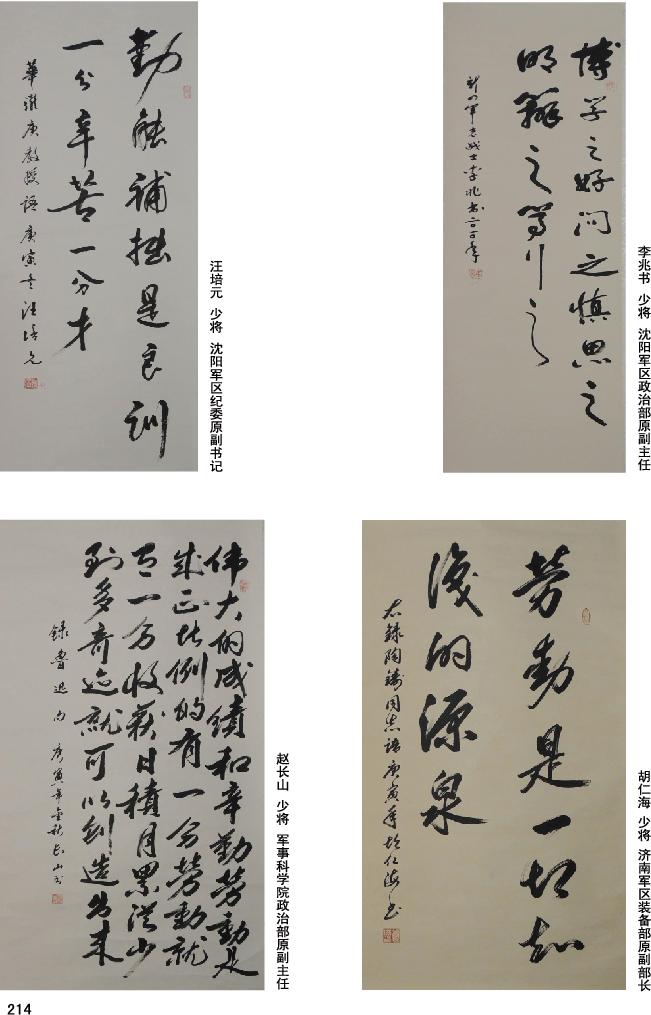 博学之好问之慎思之
明辨之笃行之
李兆书 少将 沈阳军区政治部原副主任
勤能補拙是良訓
一分辛苦一分才
華羅庚教授語 庚寅冬 汪培元
汪培元 少将 沈阳军区纪委原副书记
劳動是一切知
識的源泉
右録陶鑄同志語 庚寅年 胡仁海书
胡仁海 少将 济南军区装备部原副部长
伟大的成績和辛勤劳動是
成正比例的有一分劳動就
有一分收获日積月累從少
到多奇迹就可以創造出来
録魯迅句 庚寅年金秋長山书
赵长山 少将 军事科学院政治部原副主任
214